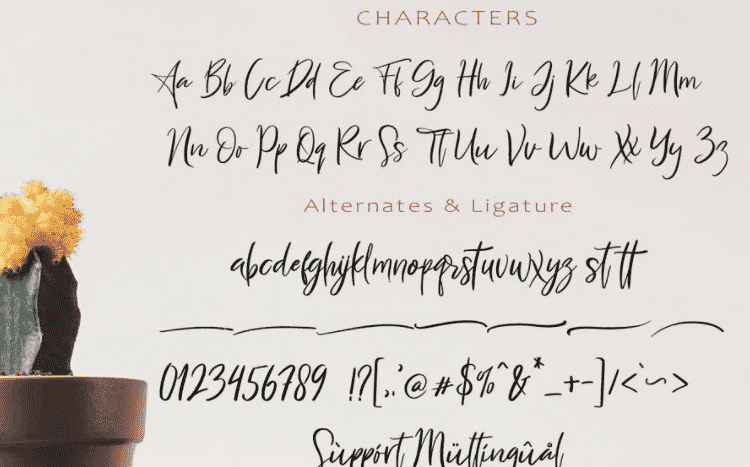 CHARACTERS
Aa Bb Cc Dd Ee Ff Gg Hh Ii Jj Kk Ll Mm
Nn Oo Pp Qq Rr Ss Tt Uu Vv Ww Xx Yy Zz
Alternates & Ligature
abcdefghijklmnopqrstuvwxyz st tt
0123456789 !?[,:'@#$%^&*_+-]/<`~>
Sùppórt Mültíngûål